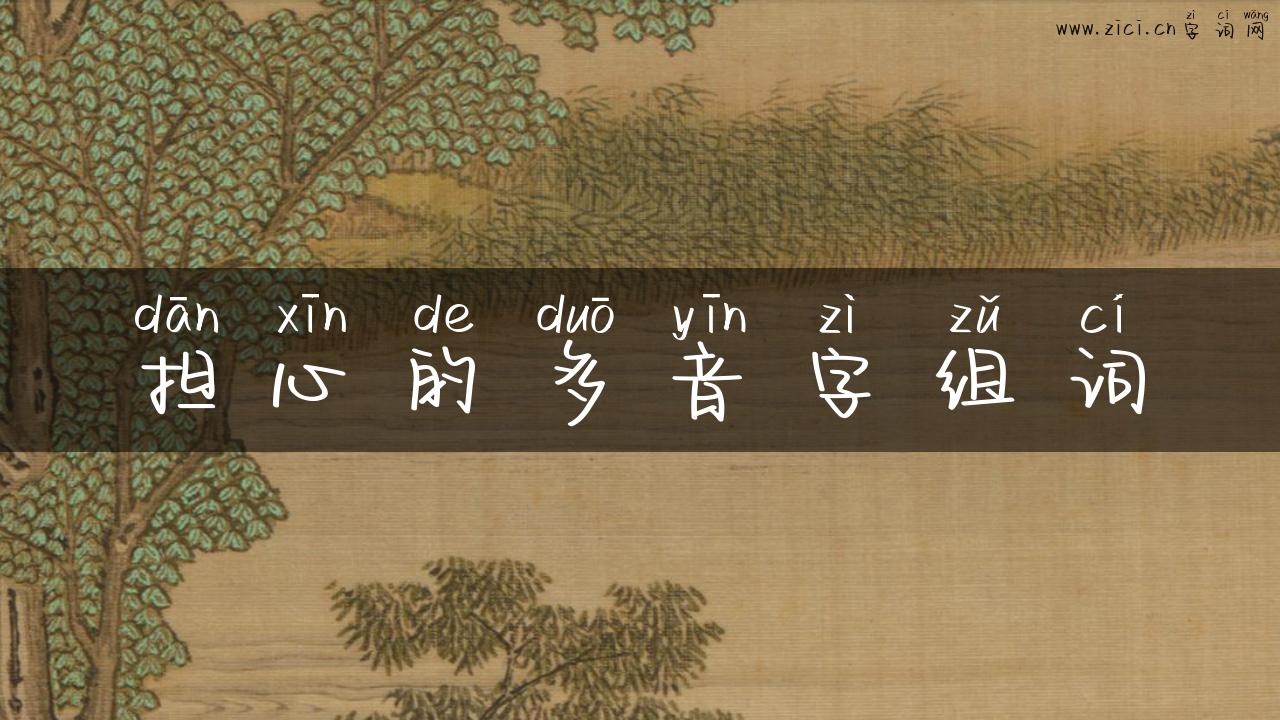 zì cí wǎng
www.zici.cn字词网
dān xīn de duō yīn zì zǔ cí
担心的多音字组词